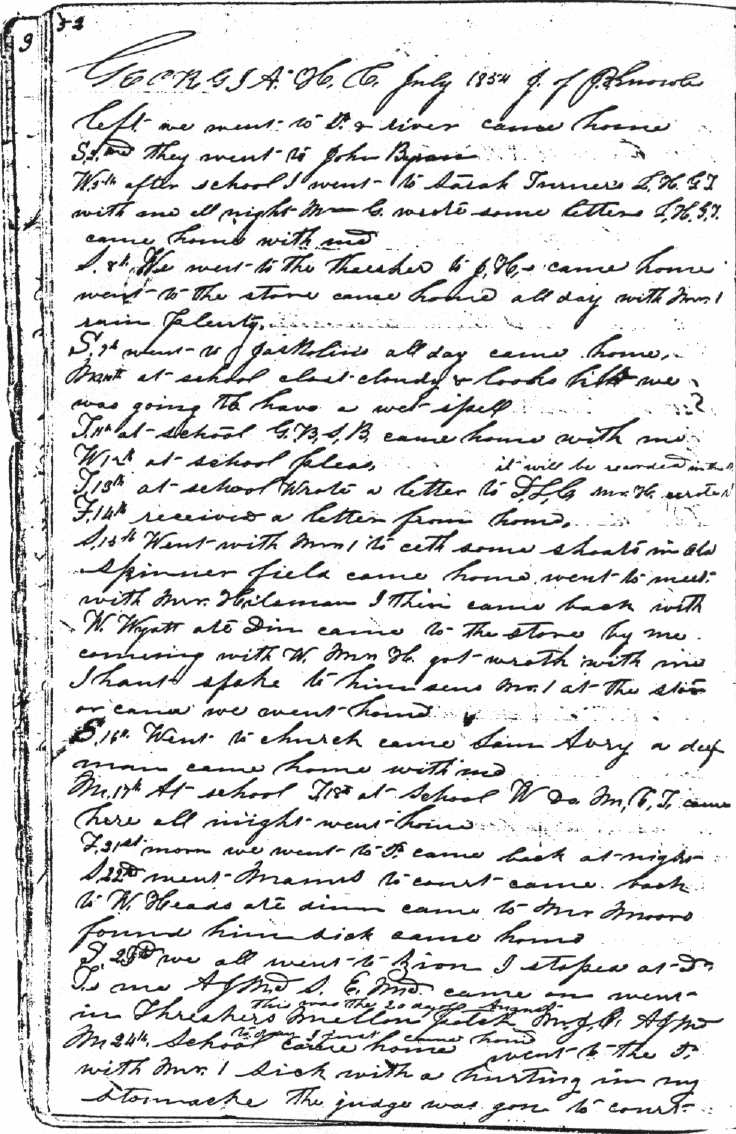 9 52
GEORGIA. H. C. July 1854 J. of
left we went to D. & river came home
S. 2nd they went to John Bynan
W 5th after school I went to Sarah Turners L. H. G T
with me all night Mr C. wrote some letters L. H. G. T.
came home with me
S. 8th We went to the thresher to J. H, & came home
went to the store came home all day with Mr. 1
rain plenty.
S. 9th went to all day came home.
M 10th at school cloudy & looks like we
was going to have a wet spell
T. 11th at school G. B, S, B. came home with me
W 12th at school pleas, it will be recorded in the
T 13th at school wrote a letter to D. L. G Mr. H. wrote
F. 14th received a letter from home,
S. 15th Went with Mr. 1 to some shoats in old
Spinner field came home, went to meet.
with Mr. Hilsman I came back with
W. Wyatt ate Din came to the store by me
comeing with W. Mr H. got wrath with me
I hant spoke to him sens Mr. 1 at the store
or came we went home
S. 16th Went to church came Sam Avry a deef
man came home with me
M. 17th At school T 18th at School W do M, C, T. came
here all night went home
F. 21st morn we went to P. came back at night
S. 22nd went to court came back
to W. Heads ate dinn came to Mr Moors
found him sick came home
S. 23rd we all went to Zion I stoped at D.
T. me A J Md S. E. Md. came on went
this was the 20 day of August
in Threshers mellon patch M. J. P. A J Md
to day I just came home
M 24th, School came home went to the P.
with Mr. 1 sick with a hurting in my
stomache the judge was gon to court